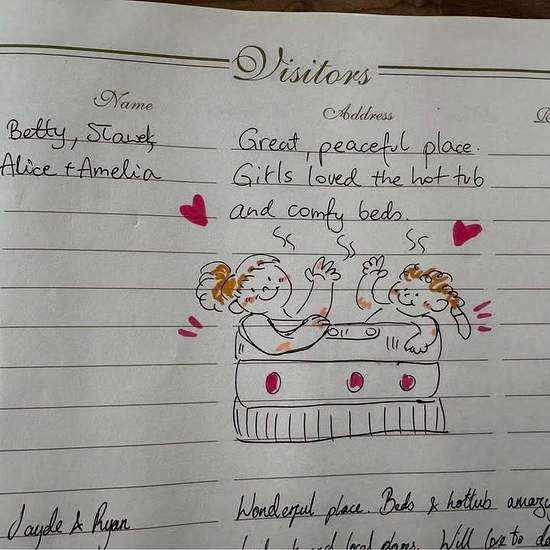 Visitors
Name
Address
Betty, Slavek,
Alice + Amelia
Great, peaceful place.
Girls loved the hot tub
and comfy beds.
Jayde & Ryan
Wonderful place. Beds & hottub
and local Will love to